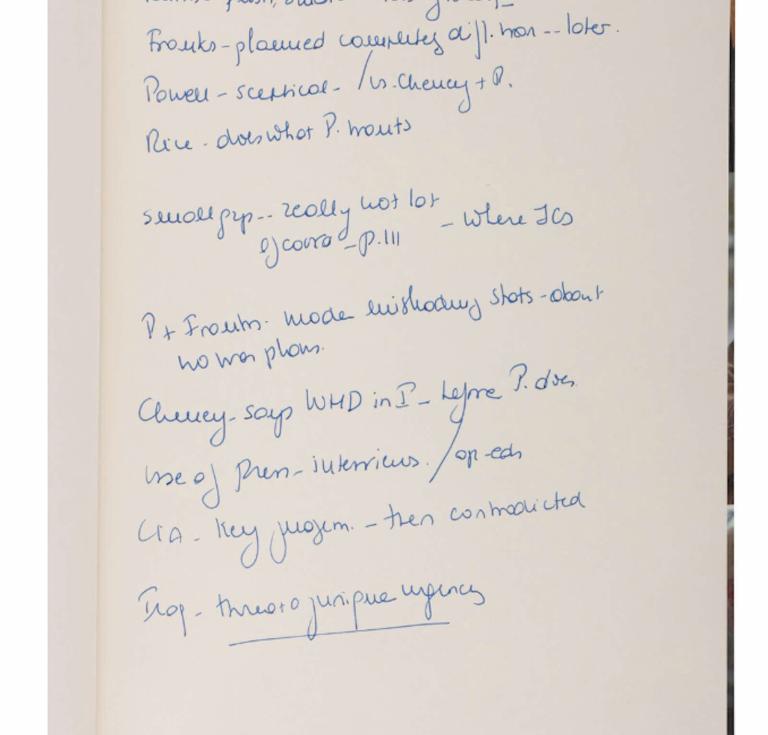 Franks - planned completely diff. war -- later.
Powell - sceptical - / vs. Cheney + P.
Rice - does what P. wants
small grp -- really not lot
of coord - p.111 - where JCS
P + Franks - made misleading stats - about
no war plans.
Cheney - says WMD in I - before P. does
use of press - interviews / op-eds
CIA - key judgem. - then contradicted
Iraq - threat of unique urgency